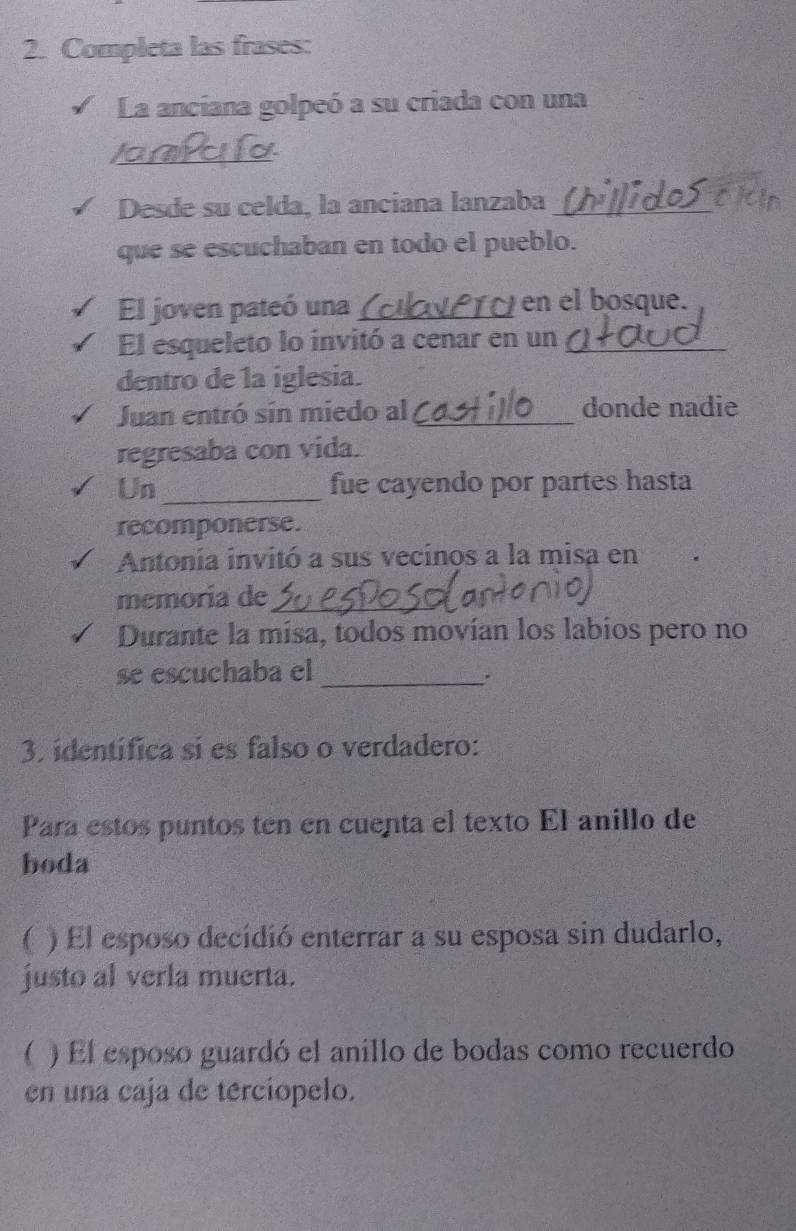 2. Completa las frases:
✓ La anciana golpeó a su criada con una
lampara.
✓ Desde su celda, la anciana lanzaba chillidos
que se escuchaban en todo el pueblo.
✓ El joven pateó una calavera en el bosque.
✓ El esqueleto lo invitó a cenar en un ataud
dentro de la iglesia.
✓ Juan entró sin miedo al castillo donde nadie
regresaba con vida.
✓ Un ____________ fue cayendo por partes hasta
recomponerse.
✓ Antonia invitó a sus vecinos a la misa en
memoria de su esposo (antonio)
✓ Durante la misa, todos movían los labios pero no
se escuchaba el ____________.
3. identifica si es falso o verdadero:
Para estos puntos ten en cuenta el texto El anillo de
boda
( ) El esposo decidió enterrar a su esposa sin dudarlo,
justo al verla muerta.
( ) El esposo guardó el anillo de bodas como recuerdo
en una caja de terciopelo.